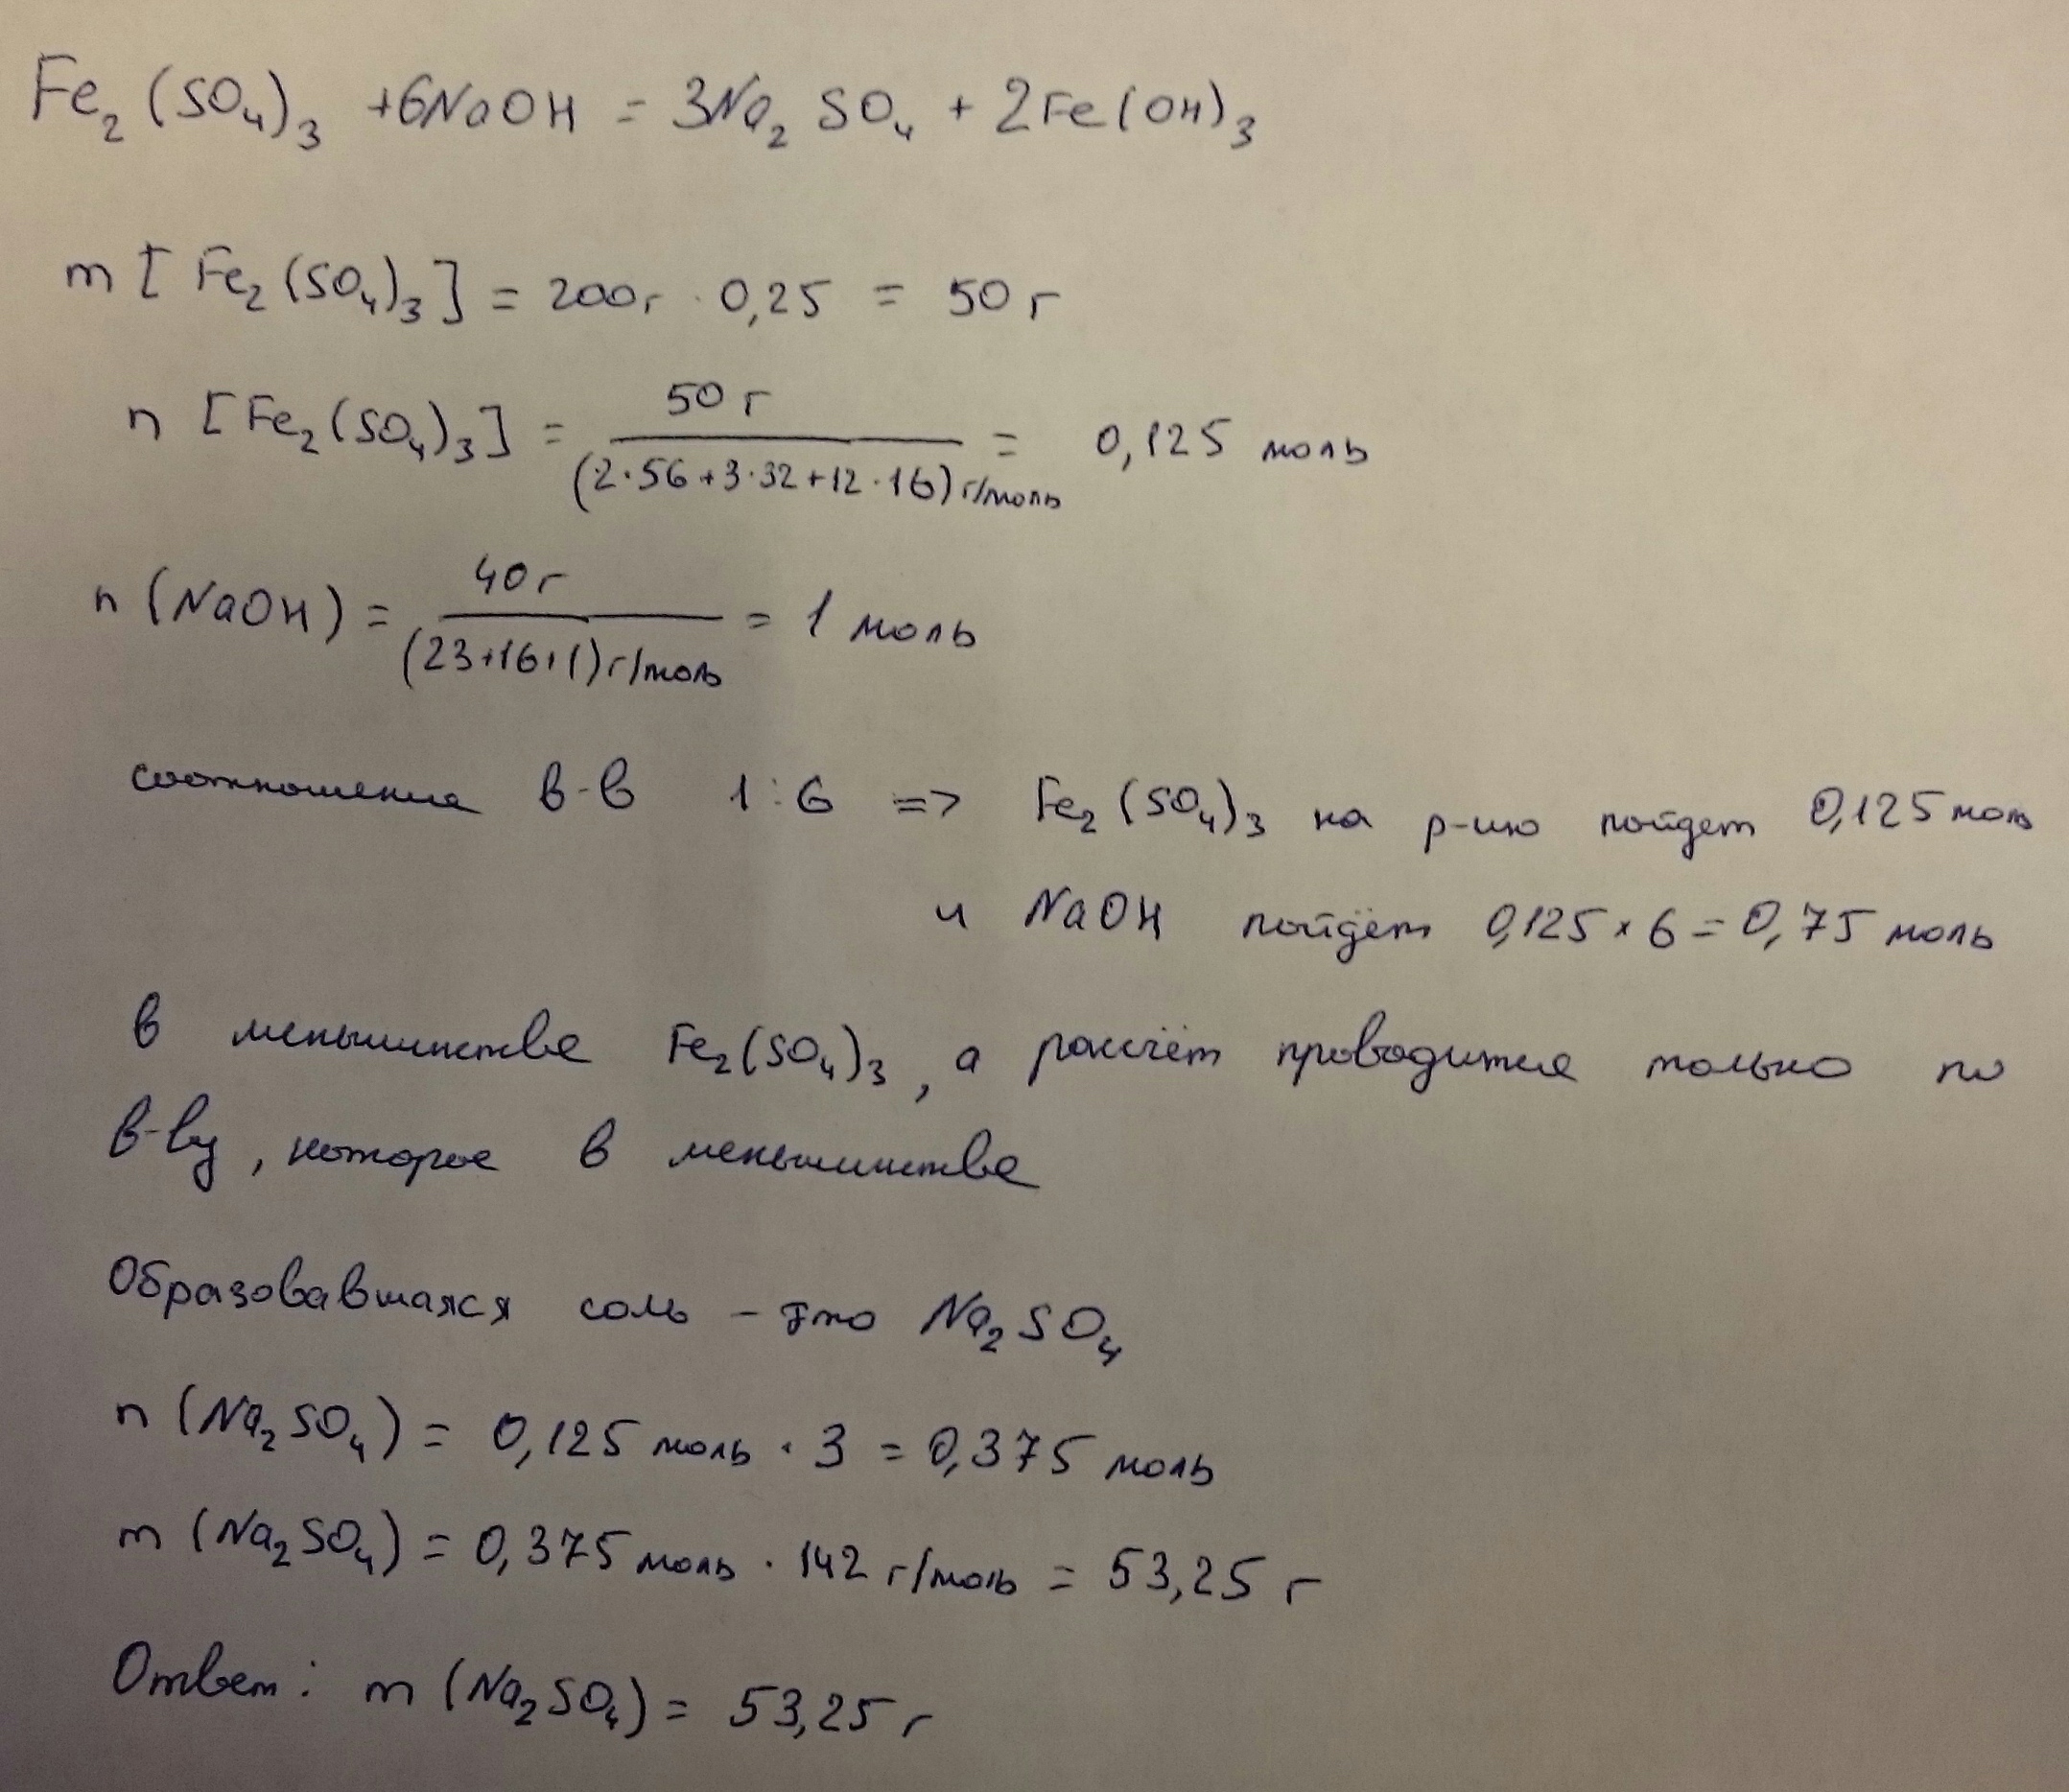 Fe₂(SO₄)₃ + 6NaOH = 3Na₂SO₄ + 2Fe(OH)₃
m [Fe₂(SO₄)₃] = 200г · 0,25 = 50 г
n [Fe₂(SO₄)₃] = 50 г / (2·56+3·32+12·16) г/моль = 0,125 моль
n (NaOH) = 40 г / (23+16+1) г/моль = 1 моль
соотношения в-в 1:6 => Fe₂(SO₄)₃ на р-цию пойдет 0,125 моль
и NaOH пойдёт 0,125 × 6 = 0,75 моль
В меньшинстве Fe₂(SO₄)₃, а рассчёт проводится только по
в-ву, которое в меньшинстве
Образовавшаяся соль – это Na₂SO₄
n (Na₂SO₄) = 0,125 моль · 3 = 0,375 моль
m (Na₂SO₄) = 0,375 моль · 142 г/моль = 53,25 г
Ответ: m (Na₂SO₄) = 53,25 г